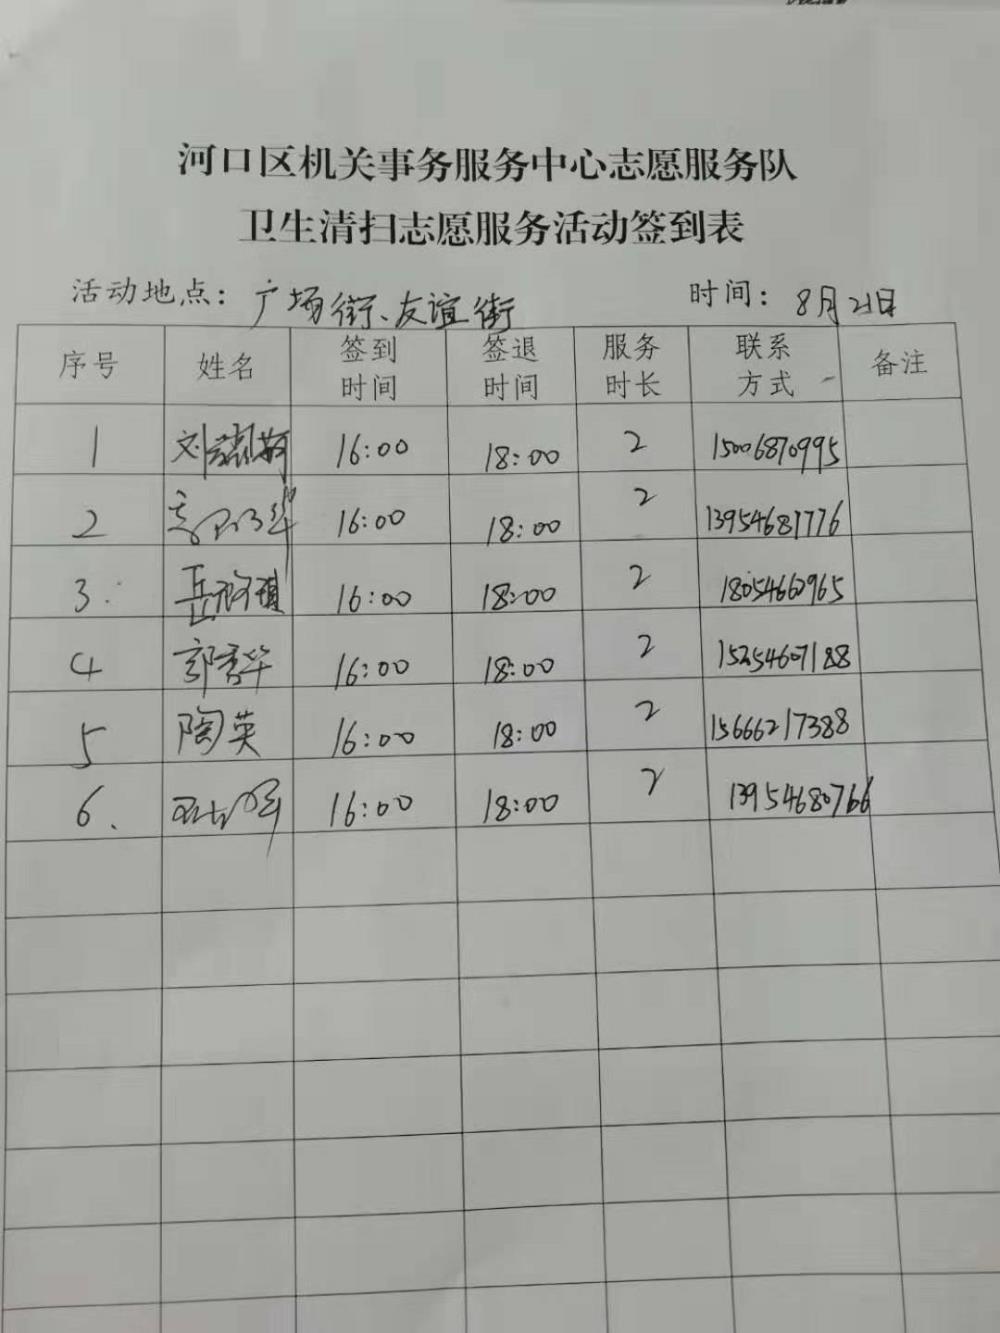 河口区机关事务服务中心志愿服务队
卫生清扫志愿服务活动签到表
活动地点：广场街、友谊街 时间：8月21日
序号 姓名 签到时间 签退时间 服务时长 联系方式 备注
1 刘 16:00 18:00 2 15006870995
2 16:00 18:00 2 13954681776
3. 岳 16:00 18:00 2 18054660965
4 郭秀华 16:00 18:00 2 15254607188
5 陶英 16:00 18:00 2 15666217388
6. 16:00 18:00 2 13954680766